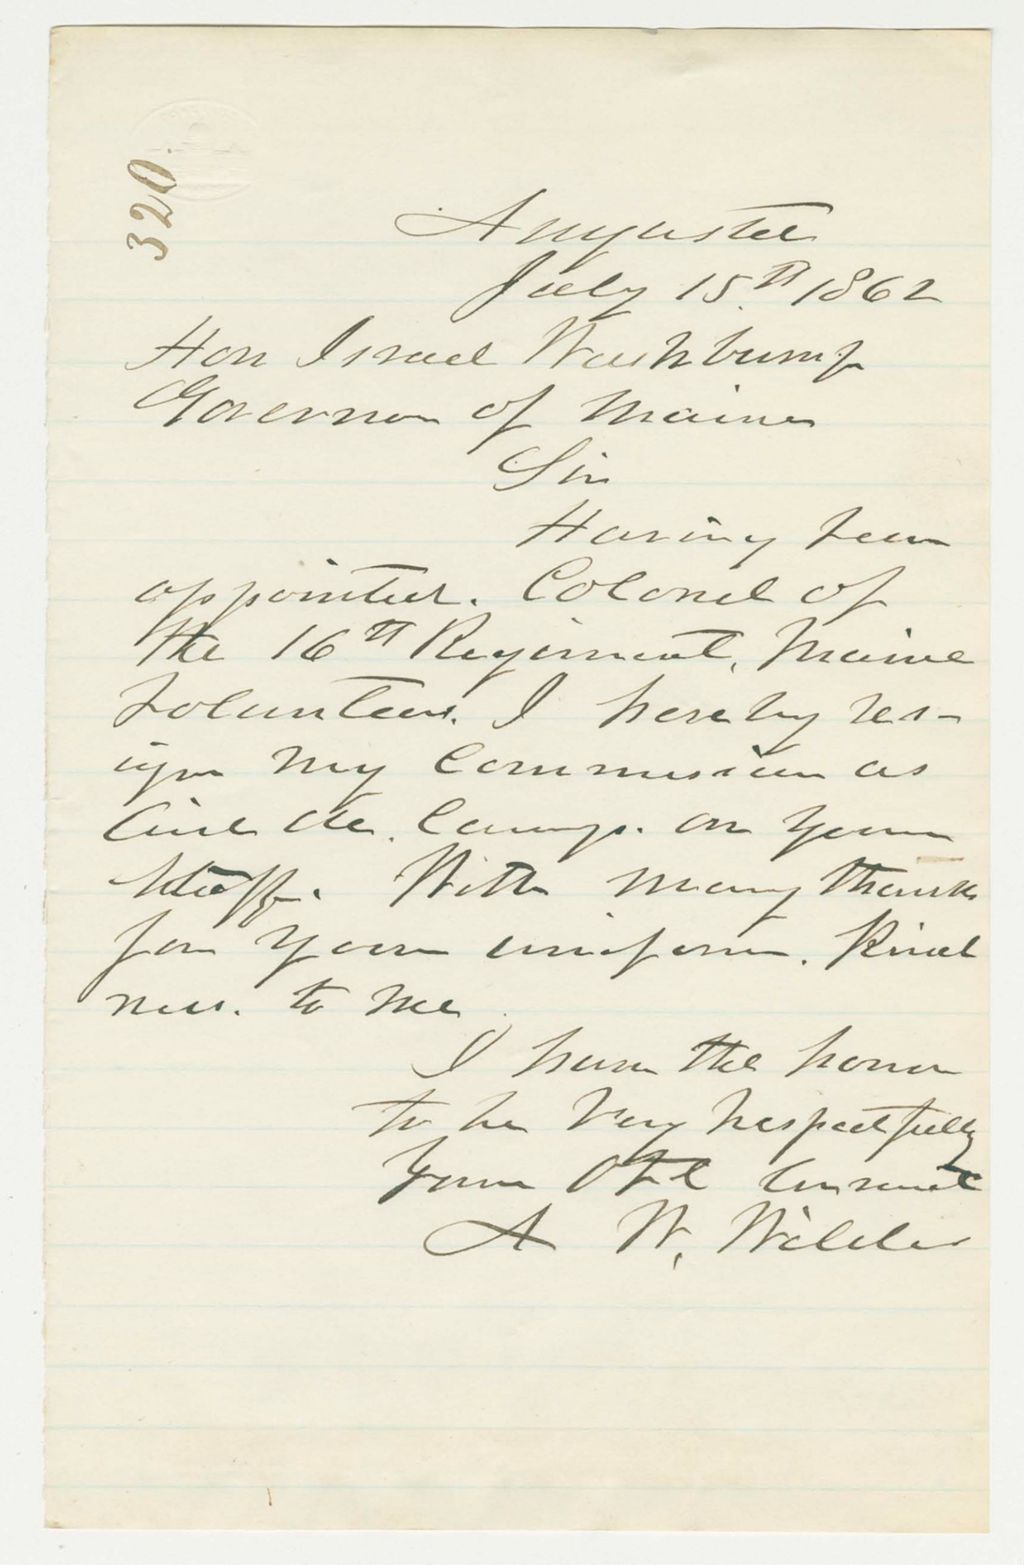 320.
Augusta
July 15th 1862
Hon Israel Washburn Jr
Governor of Maine
Sir
Having been
appointed. Colonel of
the 16th Regiment, Maine
Volunteers. I hereby res-
ign my Commission as
Aide de. Camp. on your
Staff. With many thanks
for your uniform. Kind
ness. to me.
I have the honor
to be Very Respectfully
Your Obt Servant
A W. Wilder